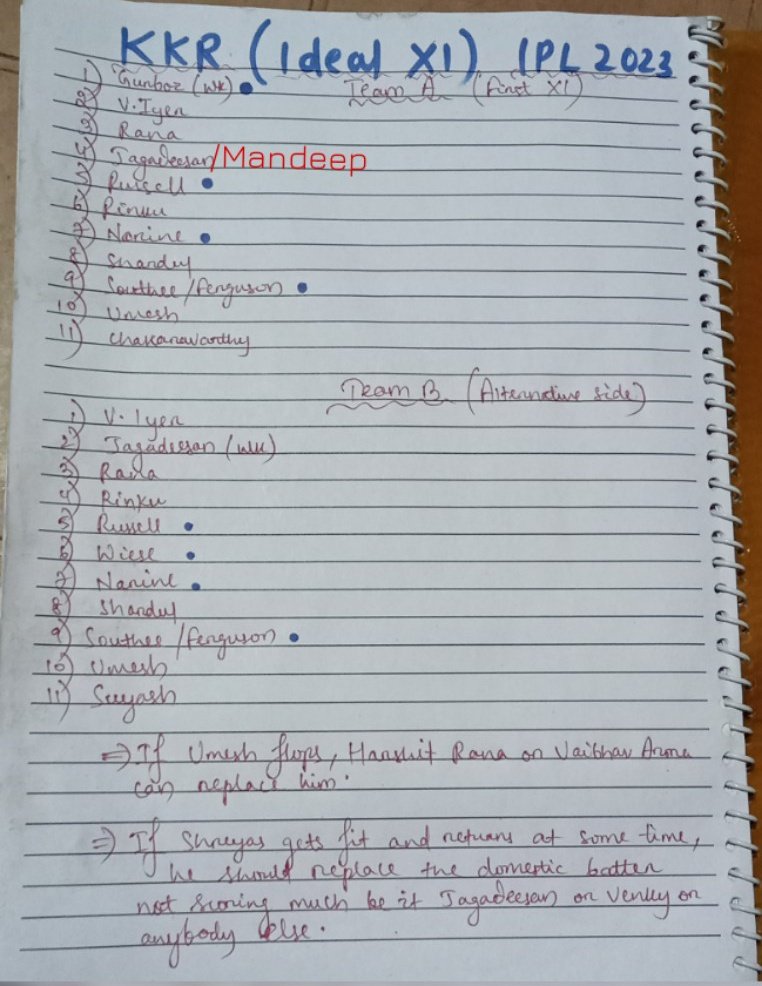 KKR (Ideal XI) IPL 2023
Team A (First XI)
1) Gurbaz (wk)
2) V. Iyer
3) Rana
4) Jagadeesan/Mandeep
5) Russell
6) Rinku
7) Narine
8) Shardul
9) Southee/Ferguson
10) Umesh
11) Chakaravarthy
Team B (Alternative side)
1) V. Iyer
2) Jagadeesan (wk)
3) Rana
4) Rinku
5) Russell
6) Wiese
7) Narine
8) Shardul
9) Southee/Ferguson
10) Umesh
11) Suyash
⇒ If Umesh flops, Harshit Rana or Vaibhav Arora
can replace him.
⇒ If Shreyas gets fit and returns at some time,
he should replace the domestic batter
not scoring much be it Jagadeesan or Venky or
anybody else.